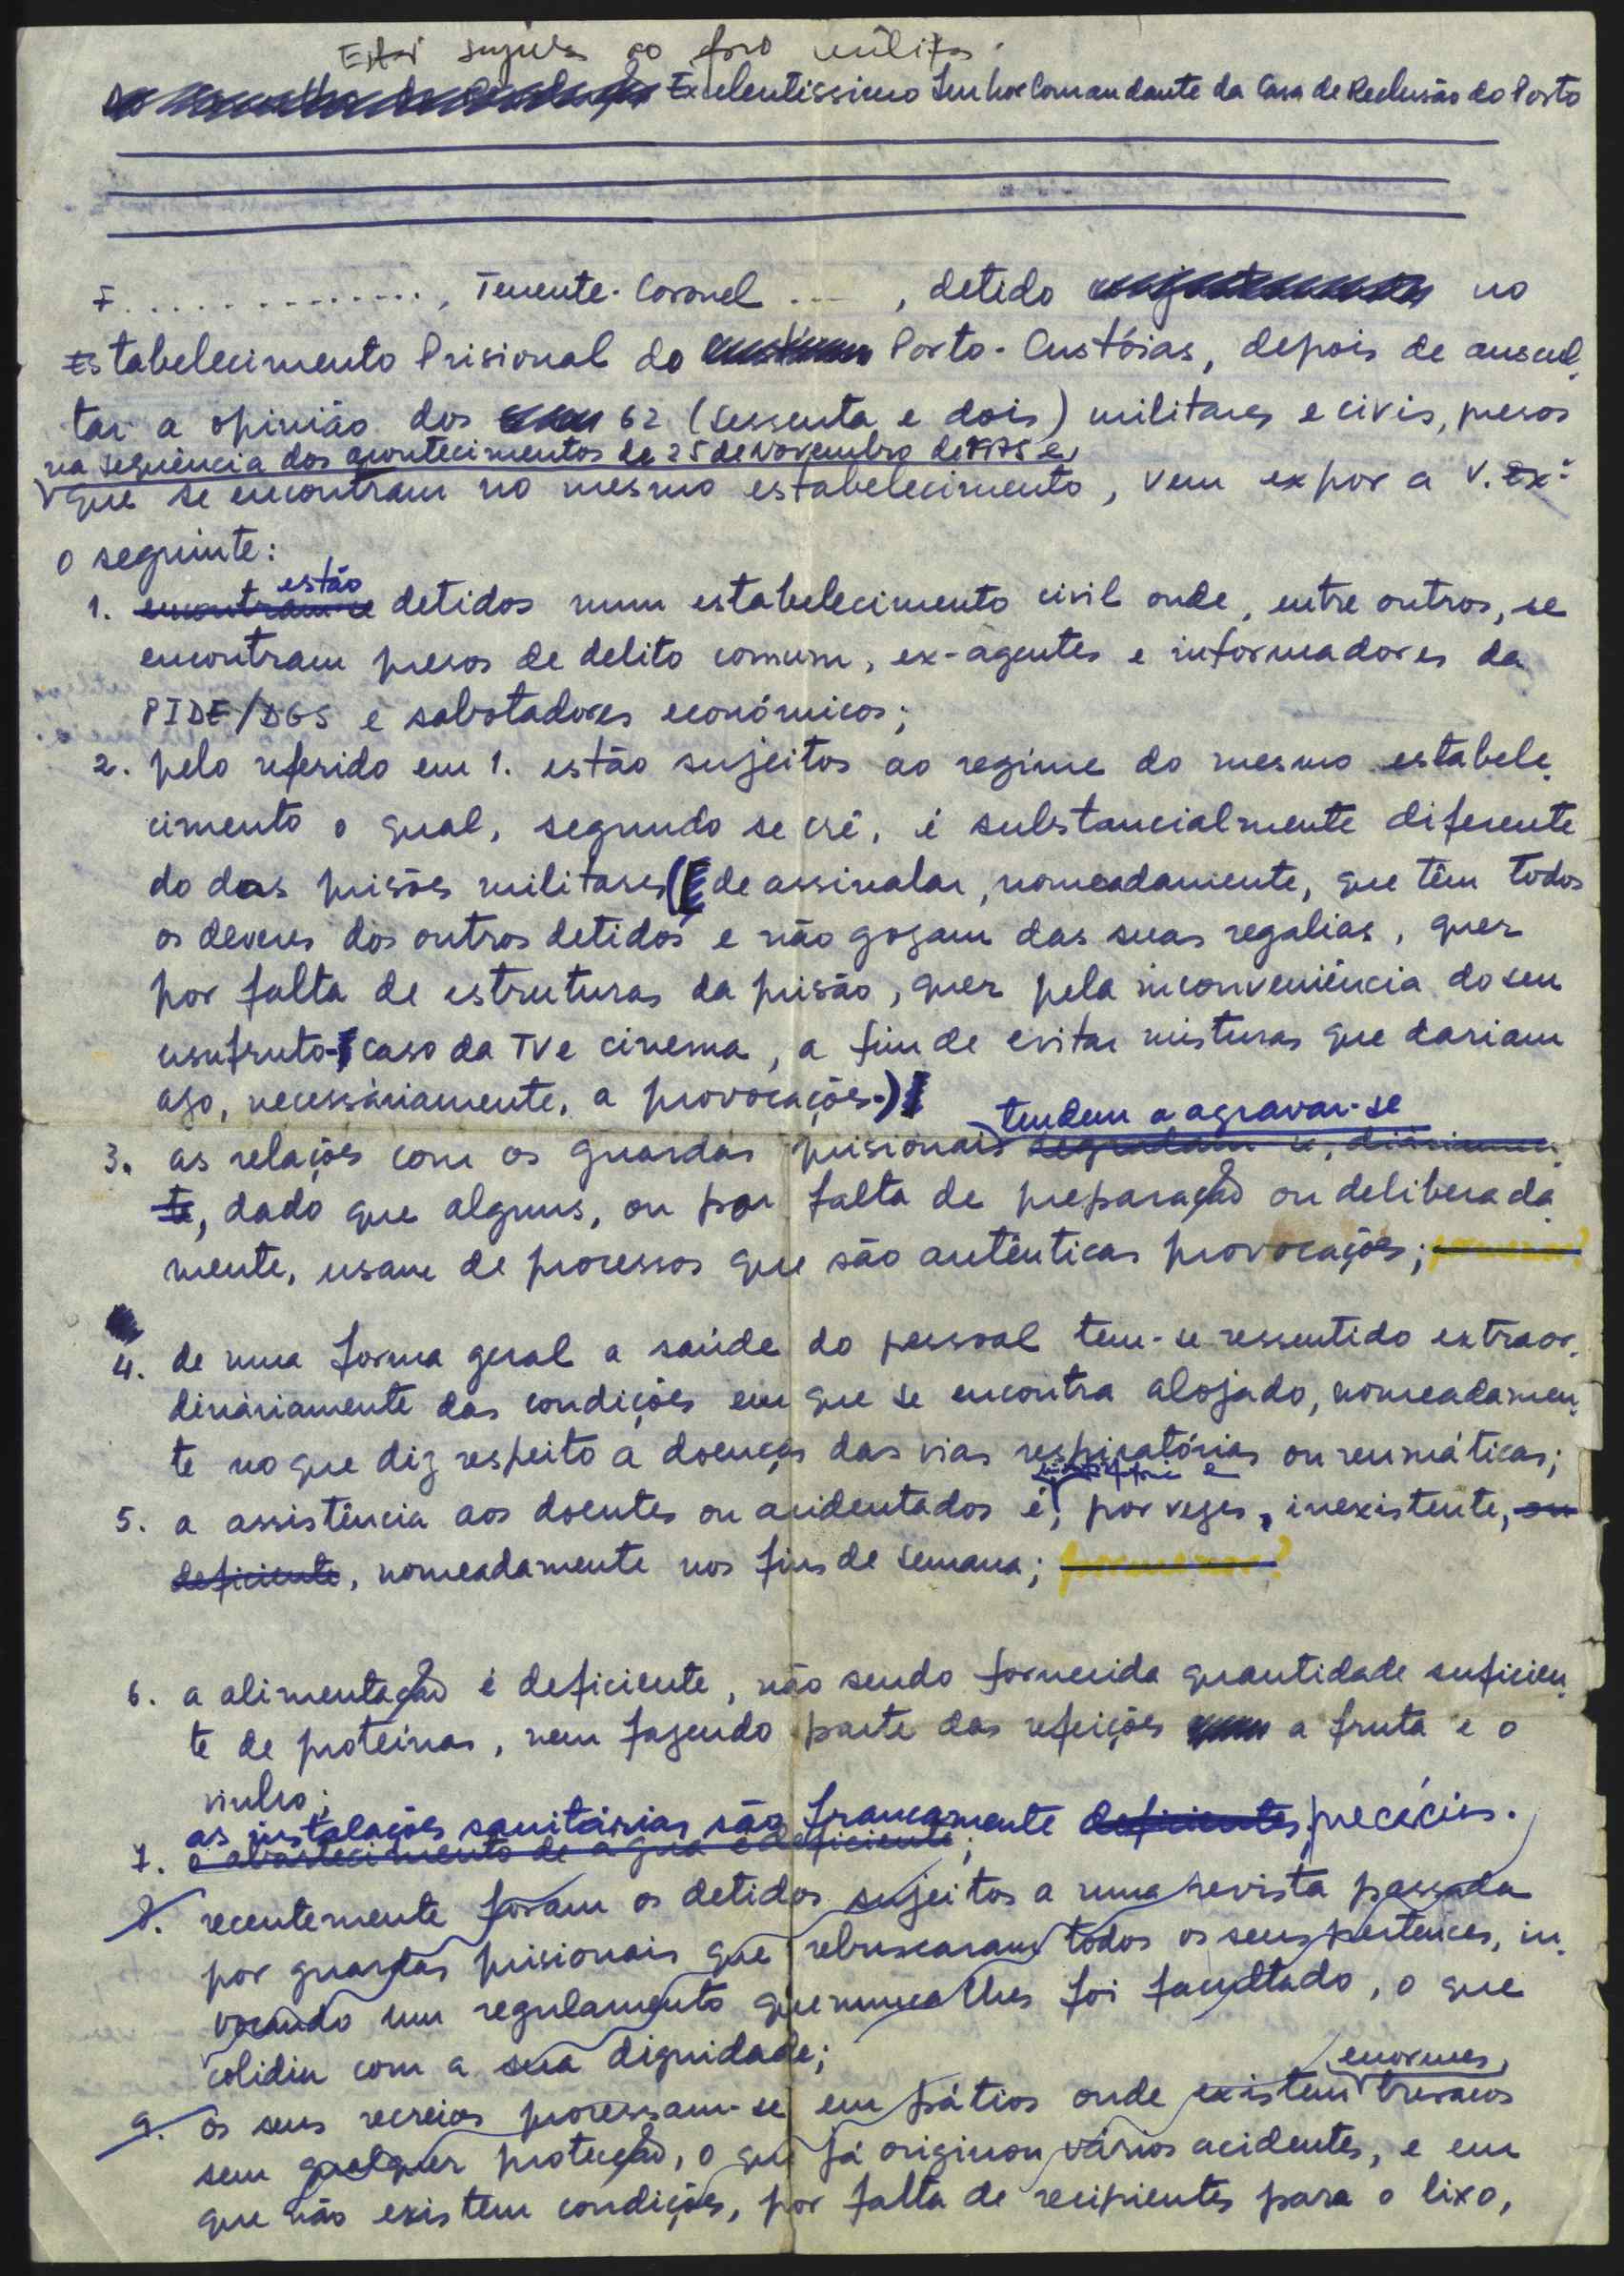 ao foro militar.
Excelentissimo Senhor Comandante da Casa de Reclusão do Porto
F. . . . . . . . . . . . . . , Tenente-Coronel ... , detido no
Estabelecimento Prisional do Porto-Custóias, depois de auscul-
tar a opinião dos 62 (sessenta e dois) militares e civis, presos
na sequência dos acontecimentos de 25 de Novembro de 1975 e,
que se encontram no mesmo estabelecimento, vem expor a V. Exª
o seguinte:
estão
1. encontram-se detidos num estabelecimento civil onde, entre outros, se
encontram presos de delito comum, ex-agentes e informadores da
PIDE/DGS e sabotadores económicos;
2. pelo referido em 1. estão sujeitos ao regime do mesmo estabele-
cimento o qual, segundo se crê, é substancialmente diferente
do das prisões militares (de assinalar, nomeadamente, que têm todos
os deveres dos outros detidos e não gozam das suas regalias, quer
por falta de estruturas da prisão, quer pela inconveniência do seu
usufruto - caso da TV e cinema, a fim de evitar misturas que dariam
azo, necessáriamente, a provocações.)
tendem a agravar-se
3. as relações com os guardas prisionais degradam-se, diàriamen-
te, dado que alguns, ou por falta de preparação ou deliberada-
mente, usam de processos que são autênticas provocações;
4. de uma forma geral a saúde do pessoal tem-se ressentido extraor-
dináriamente das condições em que se encontra alojado, nomeadamen-
te no que diz respeito a doenças das vias respiratórias ou reumáticas;
5. a assistência aos doentes ou acidentados é, por vezes, inexistente, ou
deficiente, nomeadamente nos fins de semana;
6. a alimentação é deficiente, não sendo fornecida quantidade suficien-
te de proteínas, nem fazendo parte das refeições a fruta e o
vinho;
as instalações sanitárias são francamente deficientes precárias.
7. o abastecimento de água é deficiente;
8. recentemente foram os detidos sujeitos a uma revista passada
por guardas prisionais que rebuscaram todos os seus pertences, in-
vocando um regulamento que nunca lhes foi facultado, o que
colidiu com a sua dignidade;
enormes,
9. os seus recreios processam-se em pátios onde existem buracos
sem qualquer protecção, o que já originou vários acidentes, e em
que não existem condições, por falta de recipientes para o lixo,